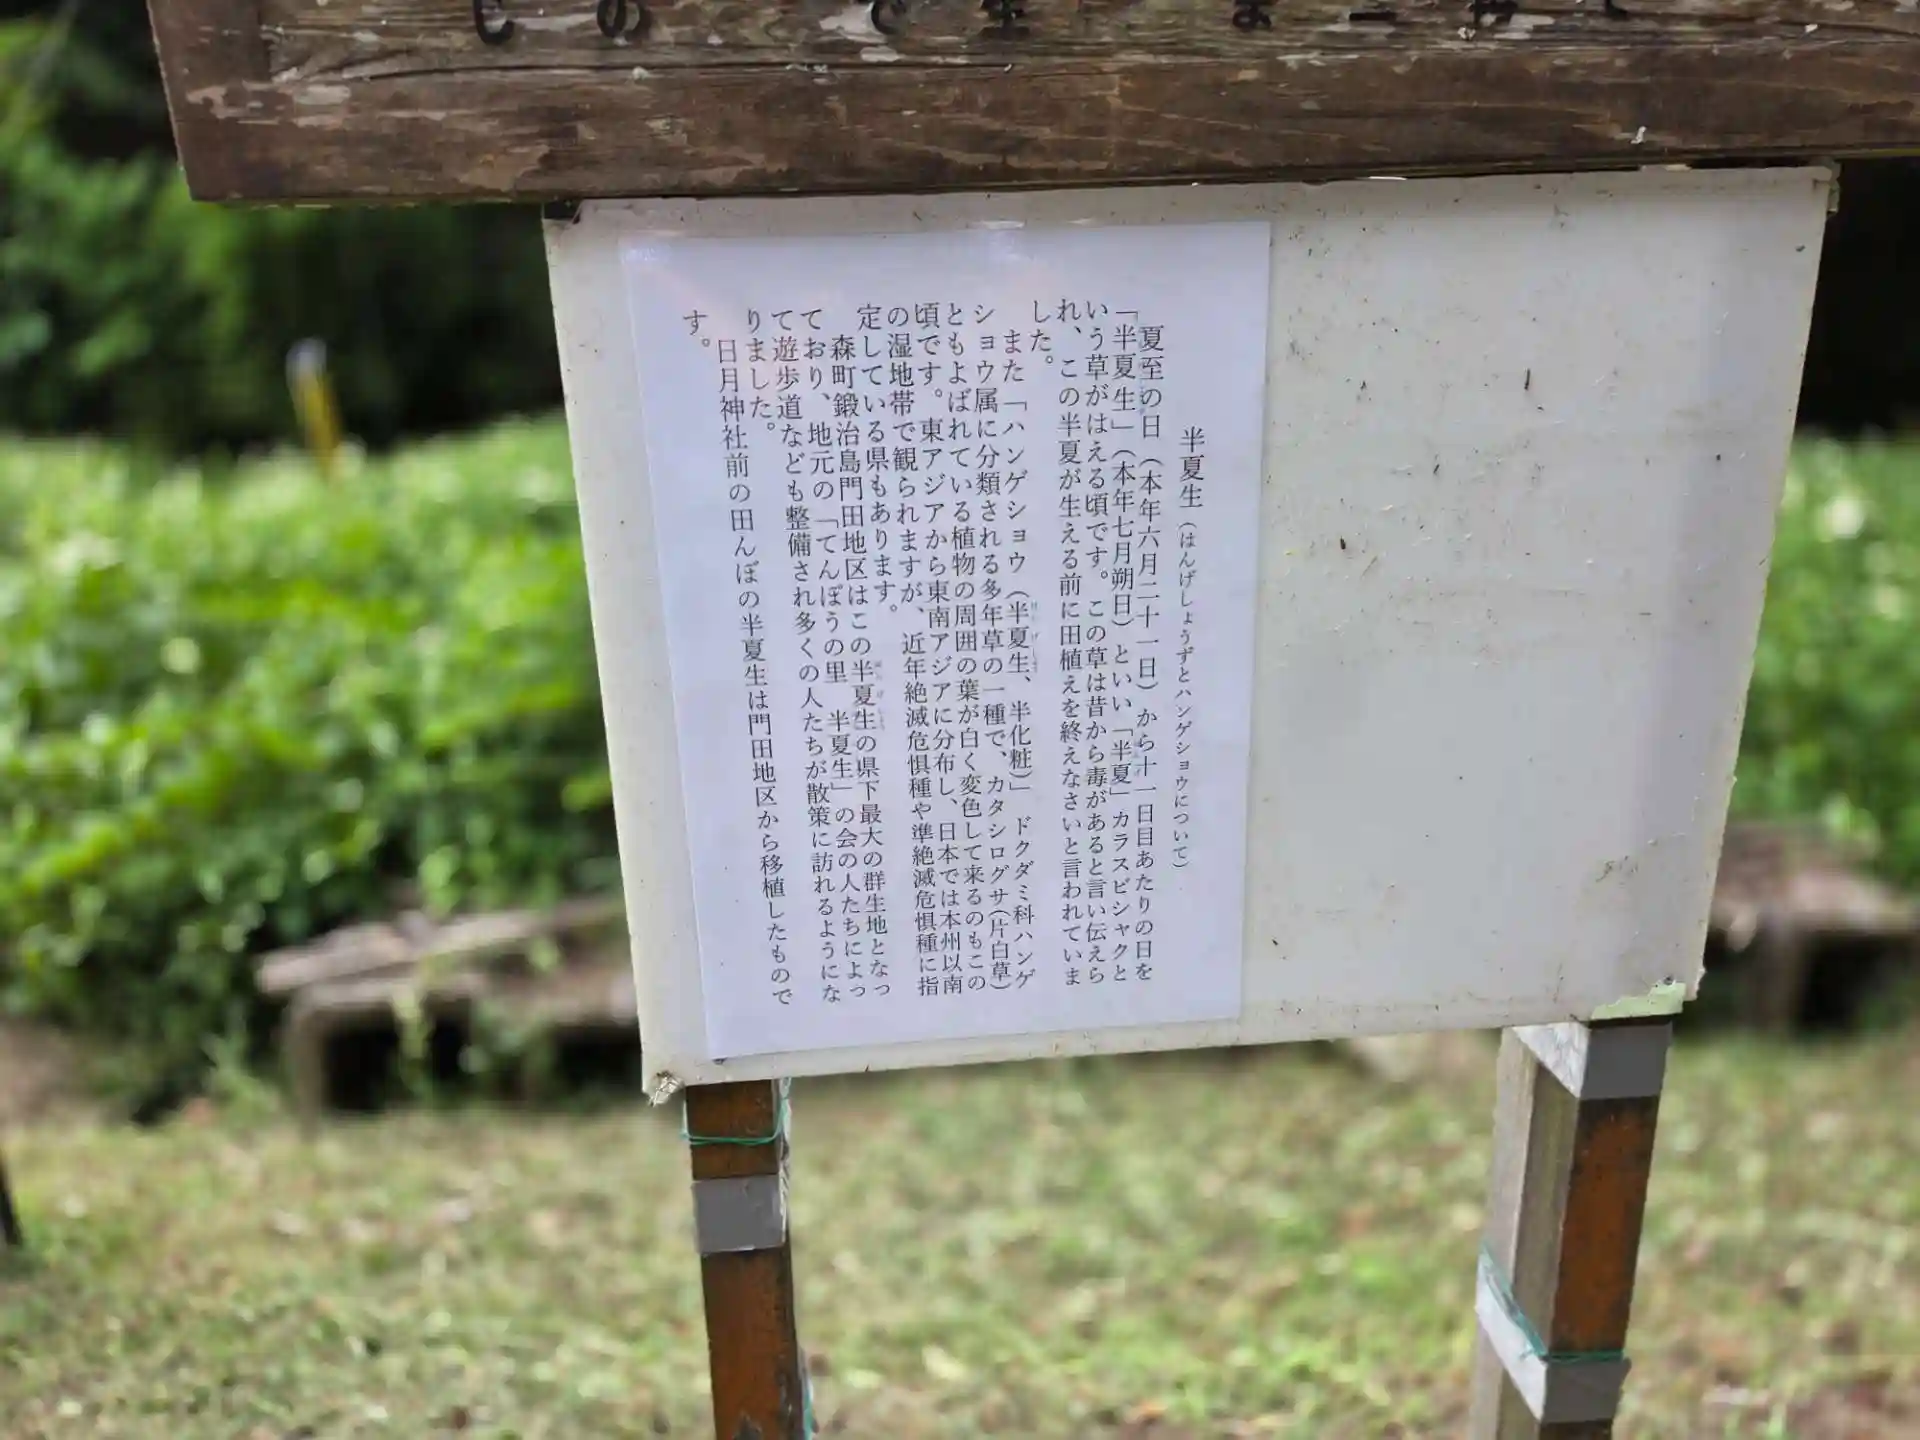 半夏生（はんげしょうずとハンゲショウについて）
夏至の日（本年六月二十一日）から十一日目あたりの日を
「半夏生」（本年七月朔日）といい「半夏」カラスビシャクと
いう草がはえる頃です。この草は昔から毒があると言い伝えら
れ、この半夏が生える前に田植えを終えなさいと言われていま
した。
また「ハンゲショウ（半夏生、半化粧）」ドクダミ科ハンゲ
ショウ属に分類される多年草の一種で、カタシログサ（片白草）
ともよばれている植物の周囲の葉が白く変色して来るのもこの
頃です。東アジアから東南アジアに分布し、日本では本州以南
の湿地帯で観られますが、近年絶滅危惧種や準絶滅危惧種に指
定している県もあります。
森町鍛治島門田地区はこの半夏生の県下最大の群生地となっ
ており、地元の「てんぽうの里　半夏生」の会の人たちによっ
て遊歩道なども整備され多くの人たちが散策に訪れるようにな
りました。
日月神社前の田んぼの半夏生は門田地区から移植したもので
す。